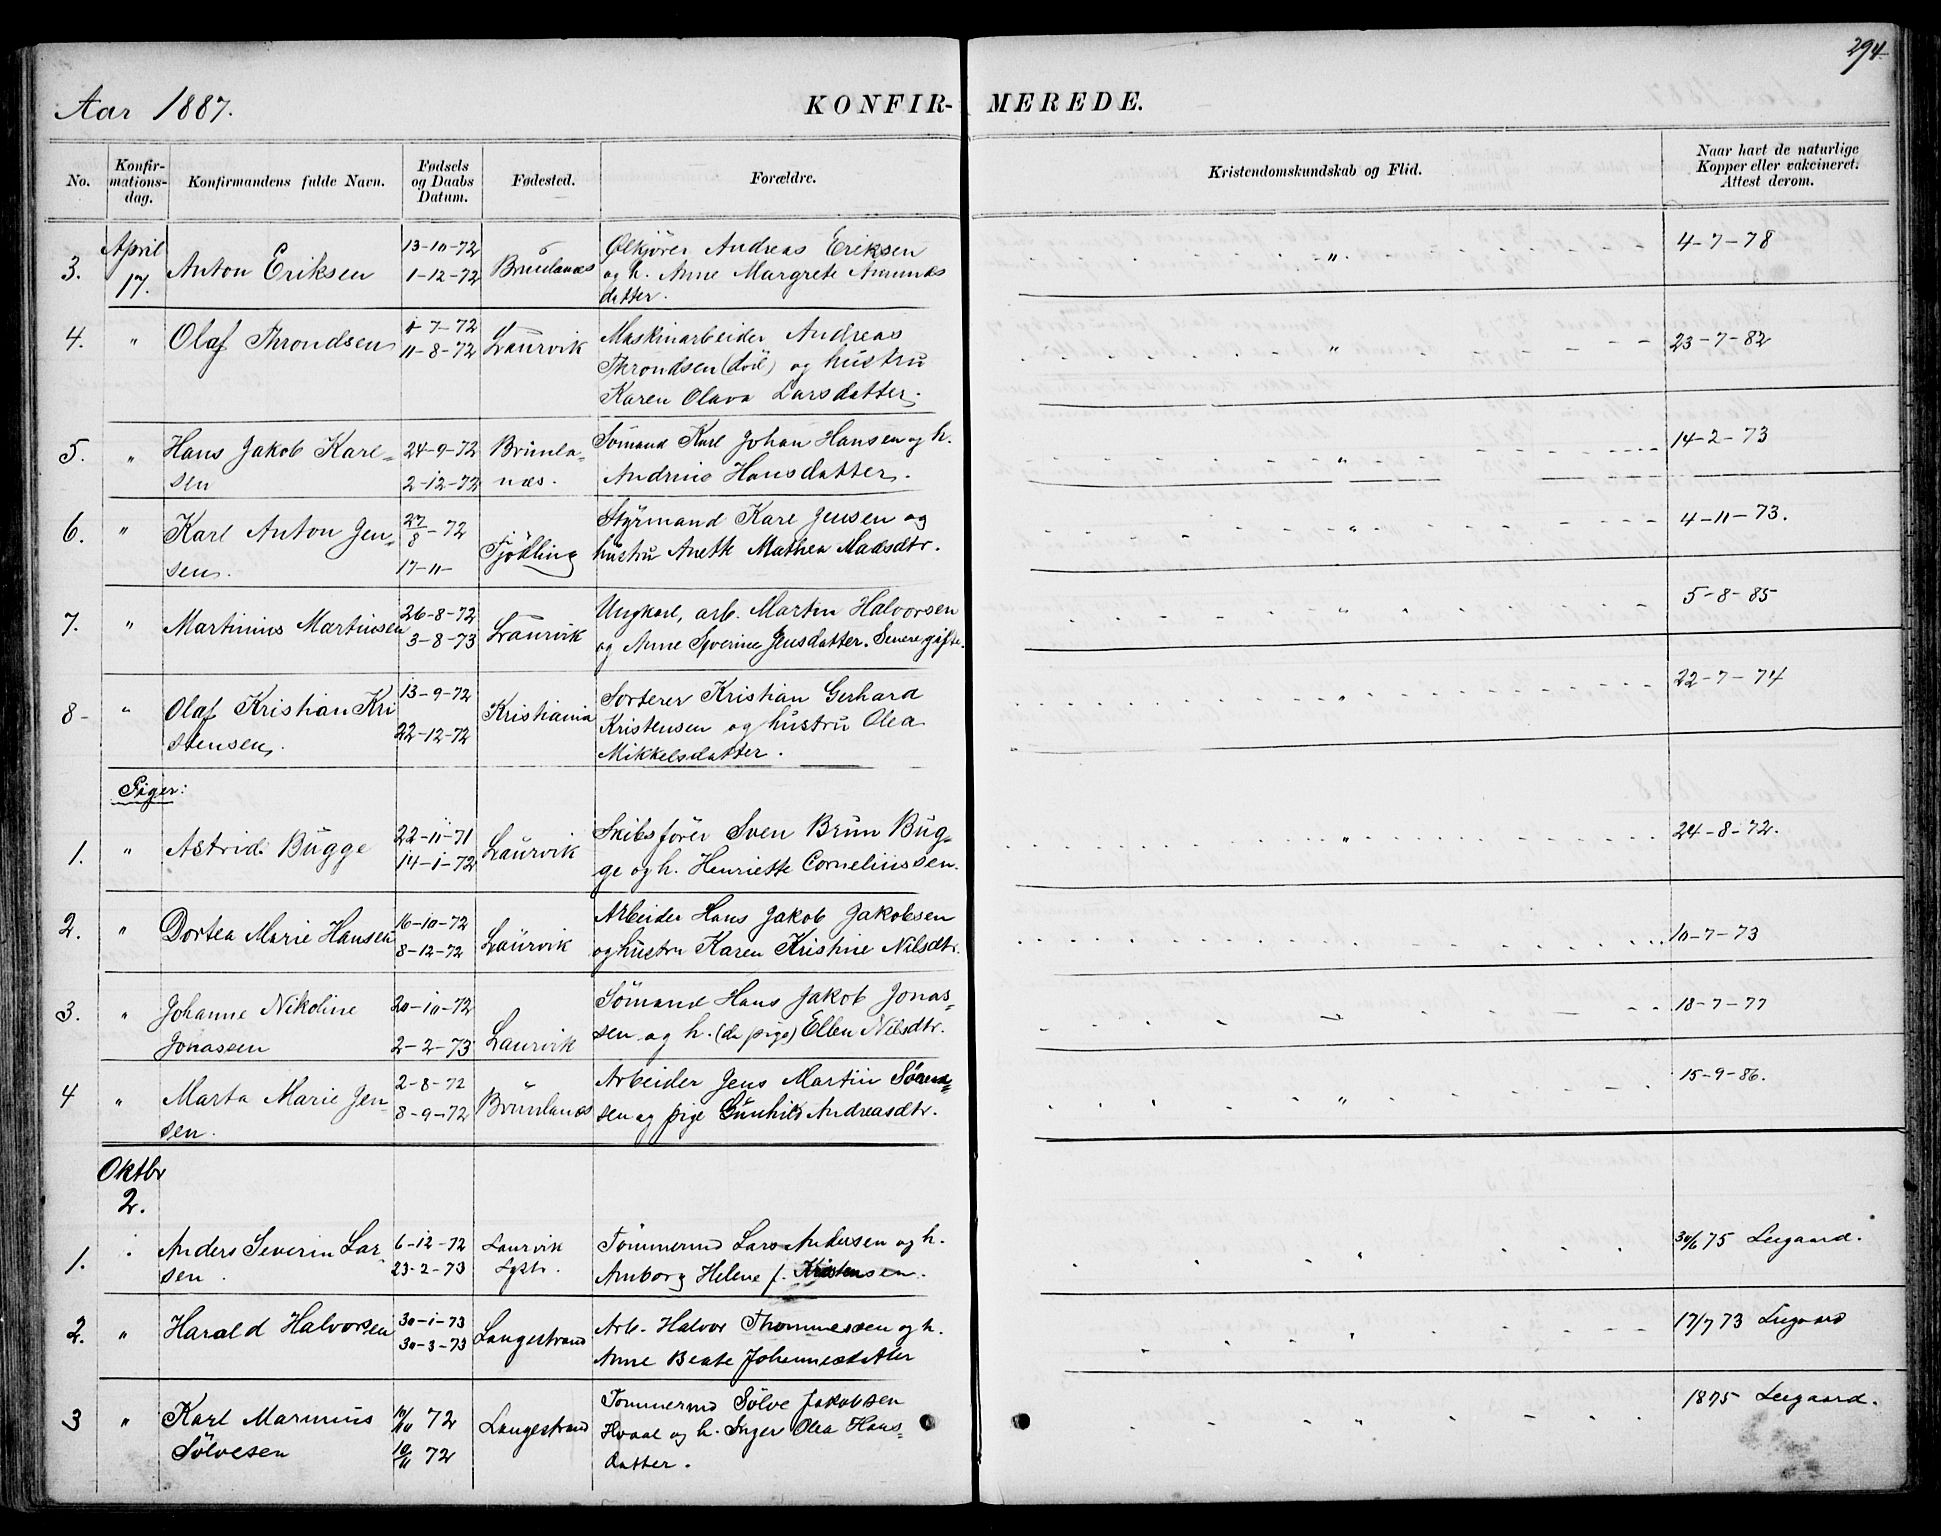 294
Aar 1887.
KONFIR- MEREDE.
No.
Konfir-
mations-
dag.
Konfirmandens fulde Navn.
Fødsels
og Daabs
Datum.
Fødested.
Forældre.
Kristendomskundskab og Flid.
Naar havt de naturlige
Kopper eller vakcineret.
Attest derom.
April
17.
3. Anton Eriksen
13-10-72
1-12-72
Brunlanæs
Ølkjører Andreas Eriksen
og h. Anne Margrete
datter.
"
4-7-78
4. " Olaf Throndsen
1-7-72
11-8-72
Laurvik
Maskinarbeider Andreas
Throndsen (död) og hustru
Karen Olava Larsdatter.
"
23-7-82
5. " Hans Jakob Karl-
sen
24-9-72
2-12-72
Brunla-
næs.
Sömand Karl Johan Hansen og h.
Andrine Hansdatter.
"
14-2-73
6. " Karl Anton Jen-
sen.
27/8-72
17-11-
Tjölling
Styrmand Karl Jensen og
hustru Anette Mathea Madsdtr.
"
4-11-73.
7. " Martinius Martinsen
26-8-72
3-8-73
Laurvik
Ungkarl, arb. Martin Halvorsen
og Anne Severine Jensdatter. Senere gifte.
"
5-8-85
8- " Olaf Kristian Kri
stensen.
13-9-72
22-12-72
Kristiania
Sorterer Kristian Gerhard
Kristensen og hustru Olea
Mikkelsdatter.
"
22-7-74
Piger:
1. " Astrid Bugge
22-11-71
14-1-72
Laurvik
Skibsförer Sven Brun Bug-
ge og h. Henriette Corneliussen.
"
24-8-72.
2. " Dortea Marie Hansen
16-10-72
8-12-72
Laurvik
Arbeider Hans Jakob Jakobsen
og hustru Karen Kristine Nilsdtr.
"
10-7-73
3. " Johanne Nikoline
Jonassen
20-10-72
2-2-73
Laurvik
Sömand Hans Jakob Jonas-
sen og h. (da pige) Ellen Nilsdtr.
"
18-7-77
4 " Marta Marie Jen-
sen.
2-8-72
8-9-72
Brunlanæs
Arbeider Jens Martin Sören-
sen og pige Gunhild Andreasdtr.
"
15-9-86.
Oktbr
2.
1. " Anders Severin Lar-
sen.
6-12-72
23-2-73
Laurvik
Tömmermd Lars Andersen og h.
Amborg Helene f. Kristensen.
"
30/6 75 Leegaard.
2. " Harald Halvorsen
30-1-73
30-3-73
Langestrand
Arb. Halvor Thommessen og h.
Anne Beate Johannesdatter
"
17/7 73 Leegaard
3 " Karl Marinius
Sölvesen
10/10 72
10/11 72
Langestrand
Tømmermd Sølve Jakobsen
Hvaal og h. Inger Olea Hans-
datter.
"
1875 Leegaard.